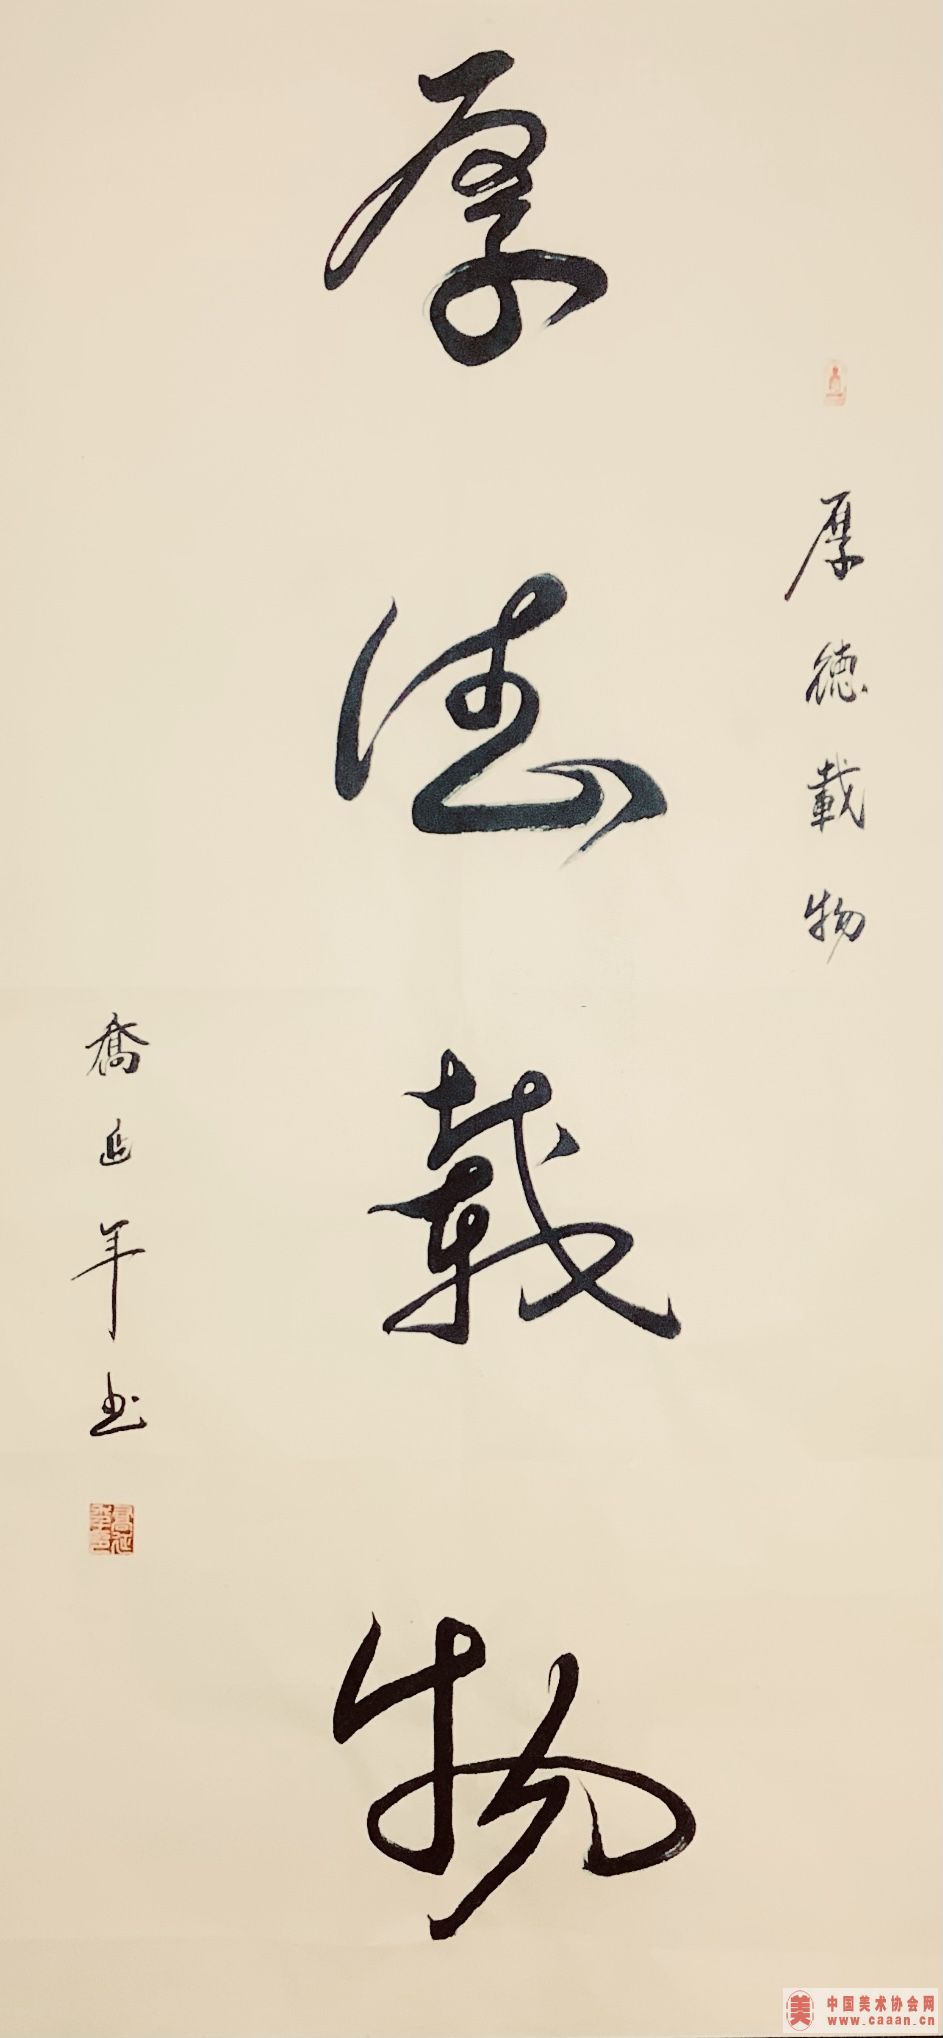 厚德載物
厚德載物
喬延年书
中国美术协会网
www.caaan.cn